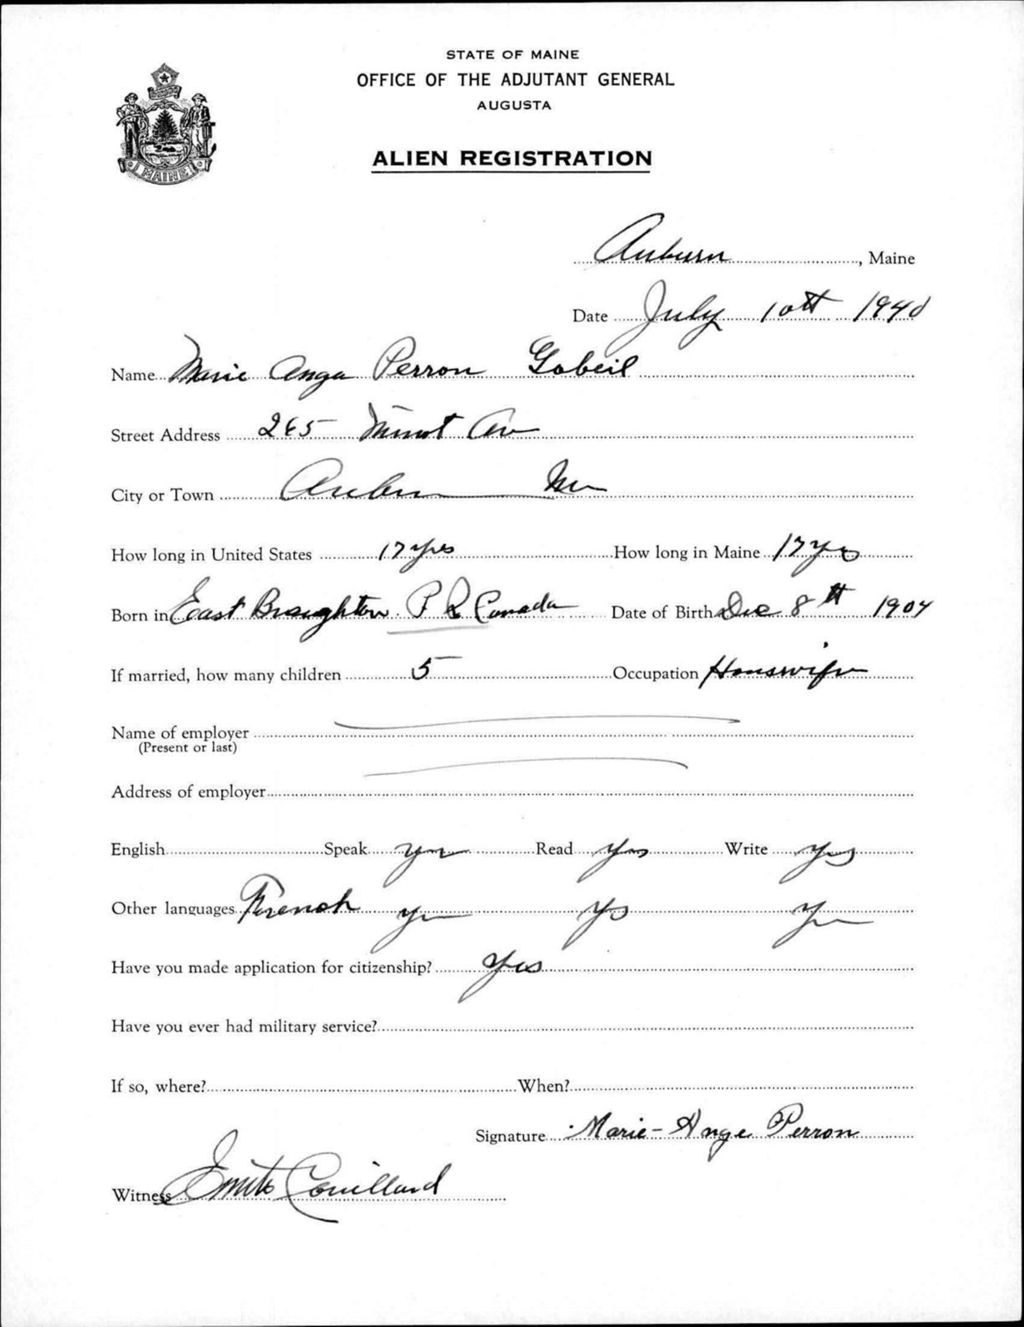 STATE OF MAINE
OFFICE OF THE ADJUTANT GENERAL
AUGUSTA
MAINE
ALIEN REGISTRATION
Auburn, Maine
Date July 10th 1940
Name Marie Ange Perron Gobeil
Street Address 265 Minot Av
City or Town Auburn Me
How long in United States 17 yrs How long in Maine 17 yrs
Born in East Broughton P Q Canada Date of Birth Dec 8th 1904
If married, how many children 5 Occupation Housewife
Name of employer
(Present or last)
Address of employer
English Speak yes Read yes Write yes
Other languages French yes yes yes
Have you made application for citizenship? Yes
Have you ever had military service?
If so, where? When?
Signature Marie-Ange Perron
Witness Couillard